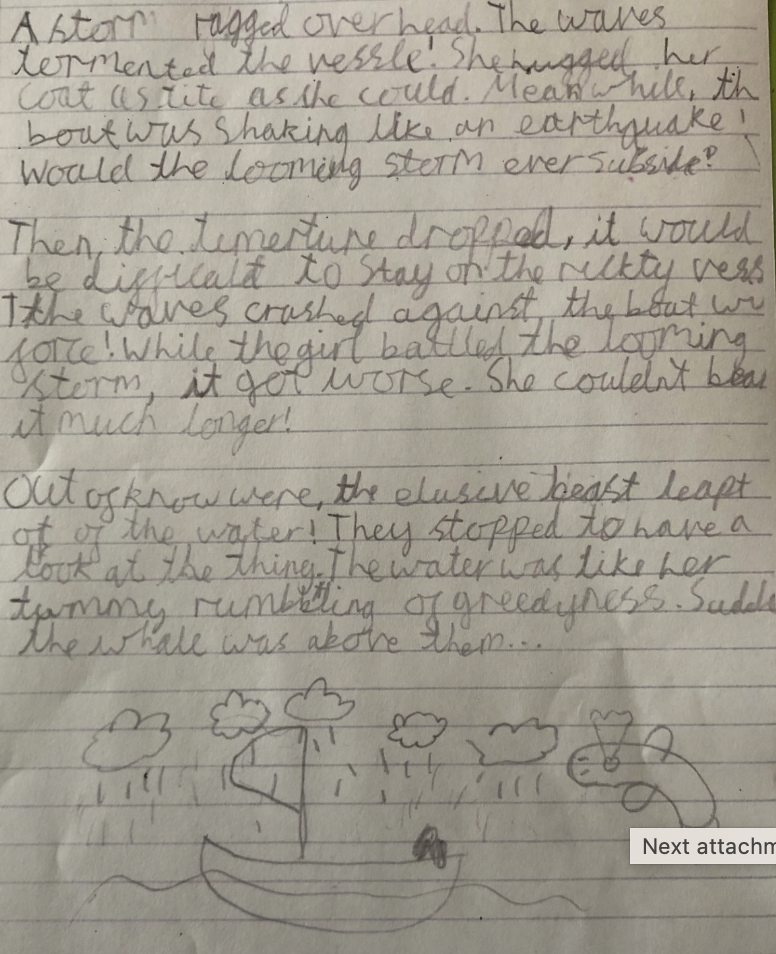 A storm ragged overhead. The waves
tormented the vessle! She hugged her
coat as tite as she could. Meanwhile, th
boat was shaking like an earthquake!
Would the looming storm ever subside?
Then, the temerture dropped, it would
be difficult to stay on the rickty vess
the waves crashed against the boat wi
force! While the girl battled the looming
storm, it got worse. She couldn't bear
it much longer!
Out of know were, the elusive beast leapt
ot of the water! They stopped to have a
look at the thing. The water was like her
tummy rumbling of greedyness. Sudde
the whale was above them...
Next attachm